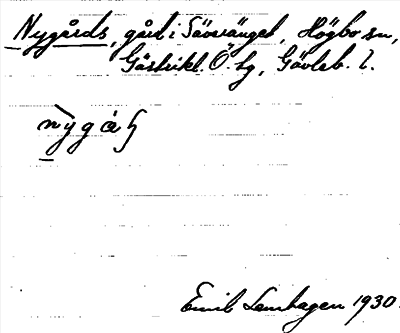 Nygårds, gård i Sävränget, Högbo sn,
Gästrikl. Ö. tg, Gävleb. l.
nygàʂ
Emil Lenhagen 1930.